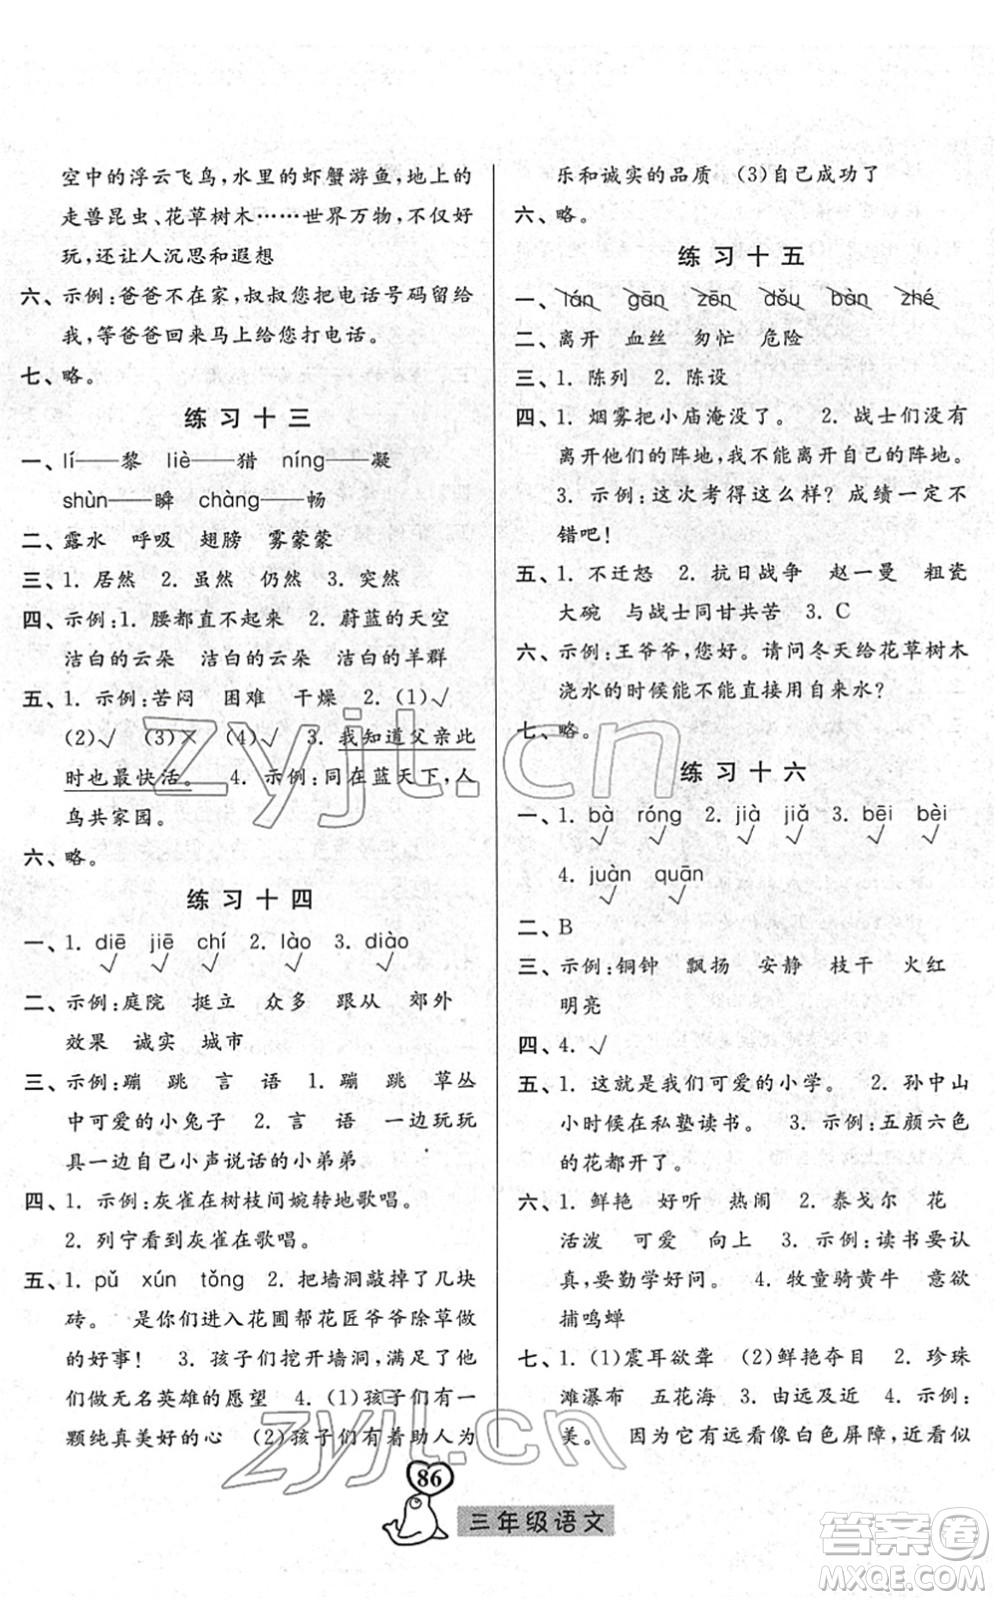 空中的浮云飞鸟,水里的虾蟹游鱼,地上的
走兽昆虫、花草树木……世界万物,不仅好
玩,还让人沉思和遐想
六、示例:爸爸不在家,叔叔您把电话号码留给
我,等爸爸回来马上给您打电话。
七、略。
练习十三
一、lí——黎 liè——猎 níng——凝
shùn——瞬 chàng——畅
二、露水 呼吸 翅膀 雾蒙蒙
三、1. 居然 2. 虽然 仍然 3. 突然
四、示例:1. 腰都直不起来 2. 蔚蓝的天空
洁白的云朵 洁白的云朵 洁白的羊群
五、1. 示例:苦闷 困难 干燥 2. (1)√
(2)√ (3)× (4)√ 3. 我知道父亲此
时也最快活。 4. 示例:同在蓝天下,人
鸟共家园。
六、略。
练习十四
一、1. diē jiē chí 2. lào 3. diào
√ √ √ √ √
二、示例:庭院 挺立 众多 跟从 郊外
效果 诚实 城市
三、示例:蹦 跳 言 语 1. 蹦 跳 草丛
中可爱的小兔子 2. 言 语 一边玩玩
具一边自己小声说话的小弟弟
四、1. 示例:灰雀在树枝间婉转地歌唱。
2. 列宁看到灰雀在歌唱。
五、1. pǔ xún tǒng 2. 把墙洞敲掉了几块
砖。 是你们进入花圃帮花匠爷爷除草做
的好事! 3. 孩子们挖开墙洞,满足了他
们做无名英雄的愿望 4. (1)孩子们有一
颗纯真美好的心 (2)孩子们有着助人为
乐和诚实的品质 (3)自己成功了
六、略。
练习十五
一、lán gān zēn dǒu bàn zhé
二、离开 血丝 匆忙 危险
三、1. 陈列 2. 陈设
四、1. 烟雾把小庙淹没了。 2. 战士们没有
离开他们的阵地,我不能离开自己的阵地。
3. 示例:这次考得这么样?成绩一定不
错吧!
五、1. 不迁怒 2. 抗日战争 赵一曼 粗瓷
大碗 与战士同甘共苦 3. C
六、示例:王爷爷,您好。请问冬天给花草树木
浇水的时候能不能直接用自来水?
七、略。
练习十六
一、1. bà róng 2. jià jiǎ 3. bēi bèi
√ √ √ √ √ √
4. juàn quān
√ √
二、B
三、示例:铜钟 飘扬 安静 枝干 火红
明亮
四、4. √
五、1. 这就是我们可爱的小学。 2. 孙中山
小时候在私塾读书。 3. 示例:五颜六色
的花都开了。
六、1. 鲜艳 好听 热闹 2. 泰戈尔 花
活泼 可爱 向上 3. 示例:读书要认
真,要勤学好问。 4. 牧童骑黄牛 意欲
捕鸣蝉
七、1. (1)震耳欲聋 (2)鲜艳夺目 2. 珍珠
滩瀑布 五花海 3. 由远及近 4. 示例:
美。 因为它有远看像白色屏障,近看似
86
三年级语文
zyjl.cn
zyjl.cn
答案圈
MXQE.COM